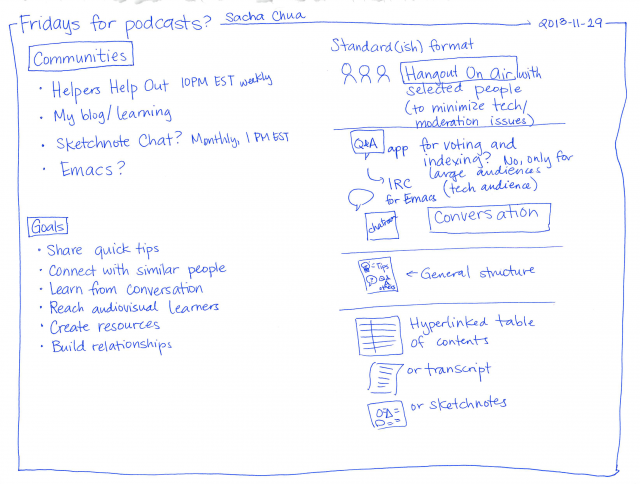 Fridays for podcasts? Sacha Chua 2013-11-29
Communities
• Helpers Help Out 10PM EST weekly
• My blog/learning
• Sketchnote Chat? Monthly, 1 PM EST
• Emacs?
Goals
• Share quick tips
• Connect with similar people
• Learn from conversation
• Reach audiovisual learners
• Create resources
• Build relationships
Standard(ish) format
Hangout On Air with
selected people
(to minimize tech/
moderation issues)
Q&A app for voting and
indexing? No, only for
large audiences
(tech audience)
IRC
for Emacs
chatroom
Conversation
= Tips
Q&A
← General structure
Hyperlinked table
of contents
or transcript
or sketchnotes